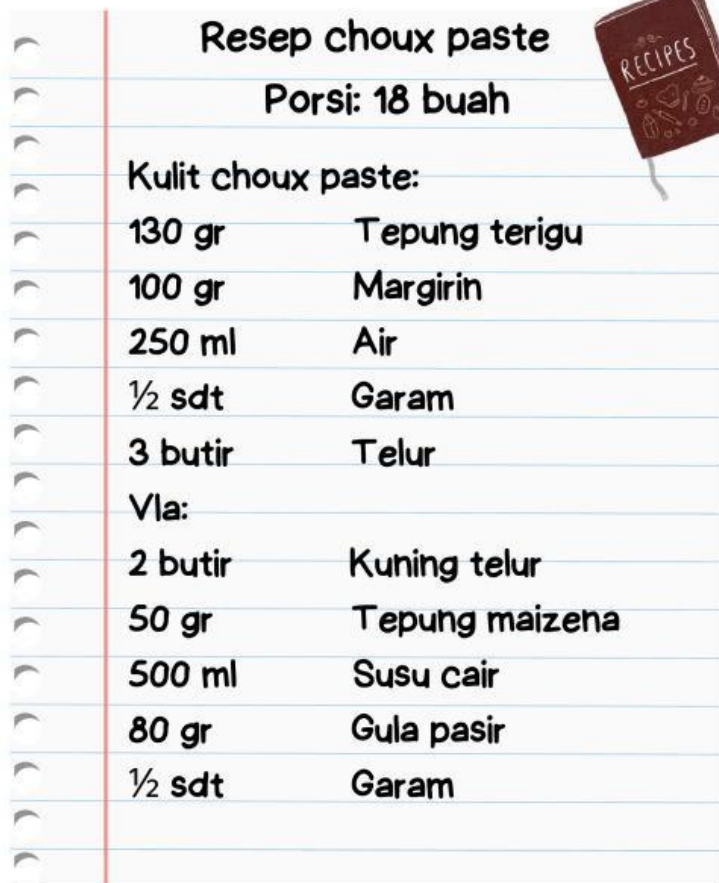 Resep choux paste
RECIPES
Porsi: 18 buah
Kulit choux paste:
130 gr Tepung terigu
100 gr Margirin
250 ml Air
½ sdt Garam
3 butir Telur
Vla:
2 butir Kuning telur
50 gr Tepung maizena
500 ml Susu cair
80 gr Gula pasir
½ sdt Garam